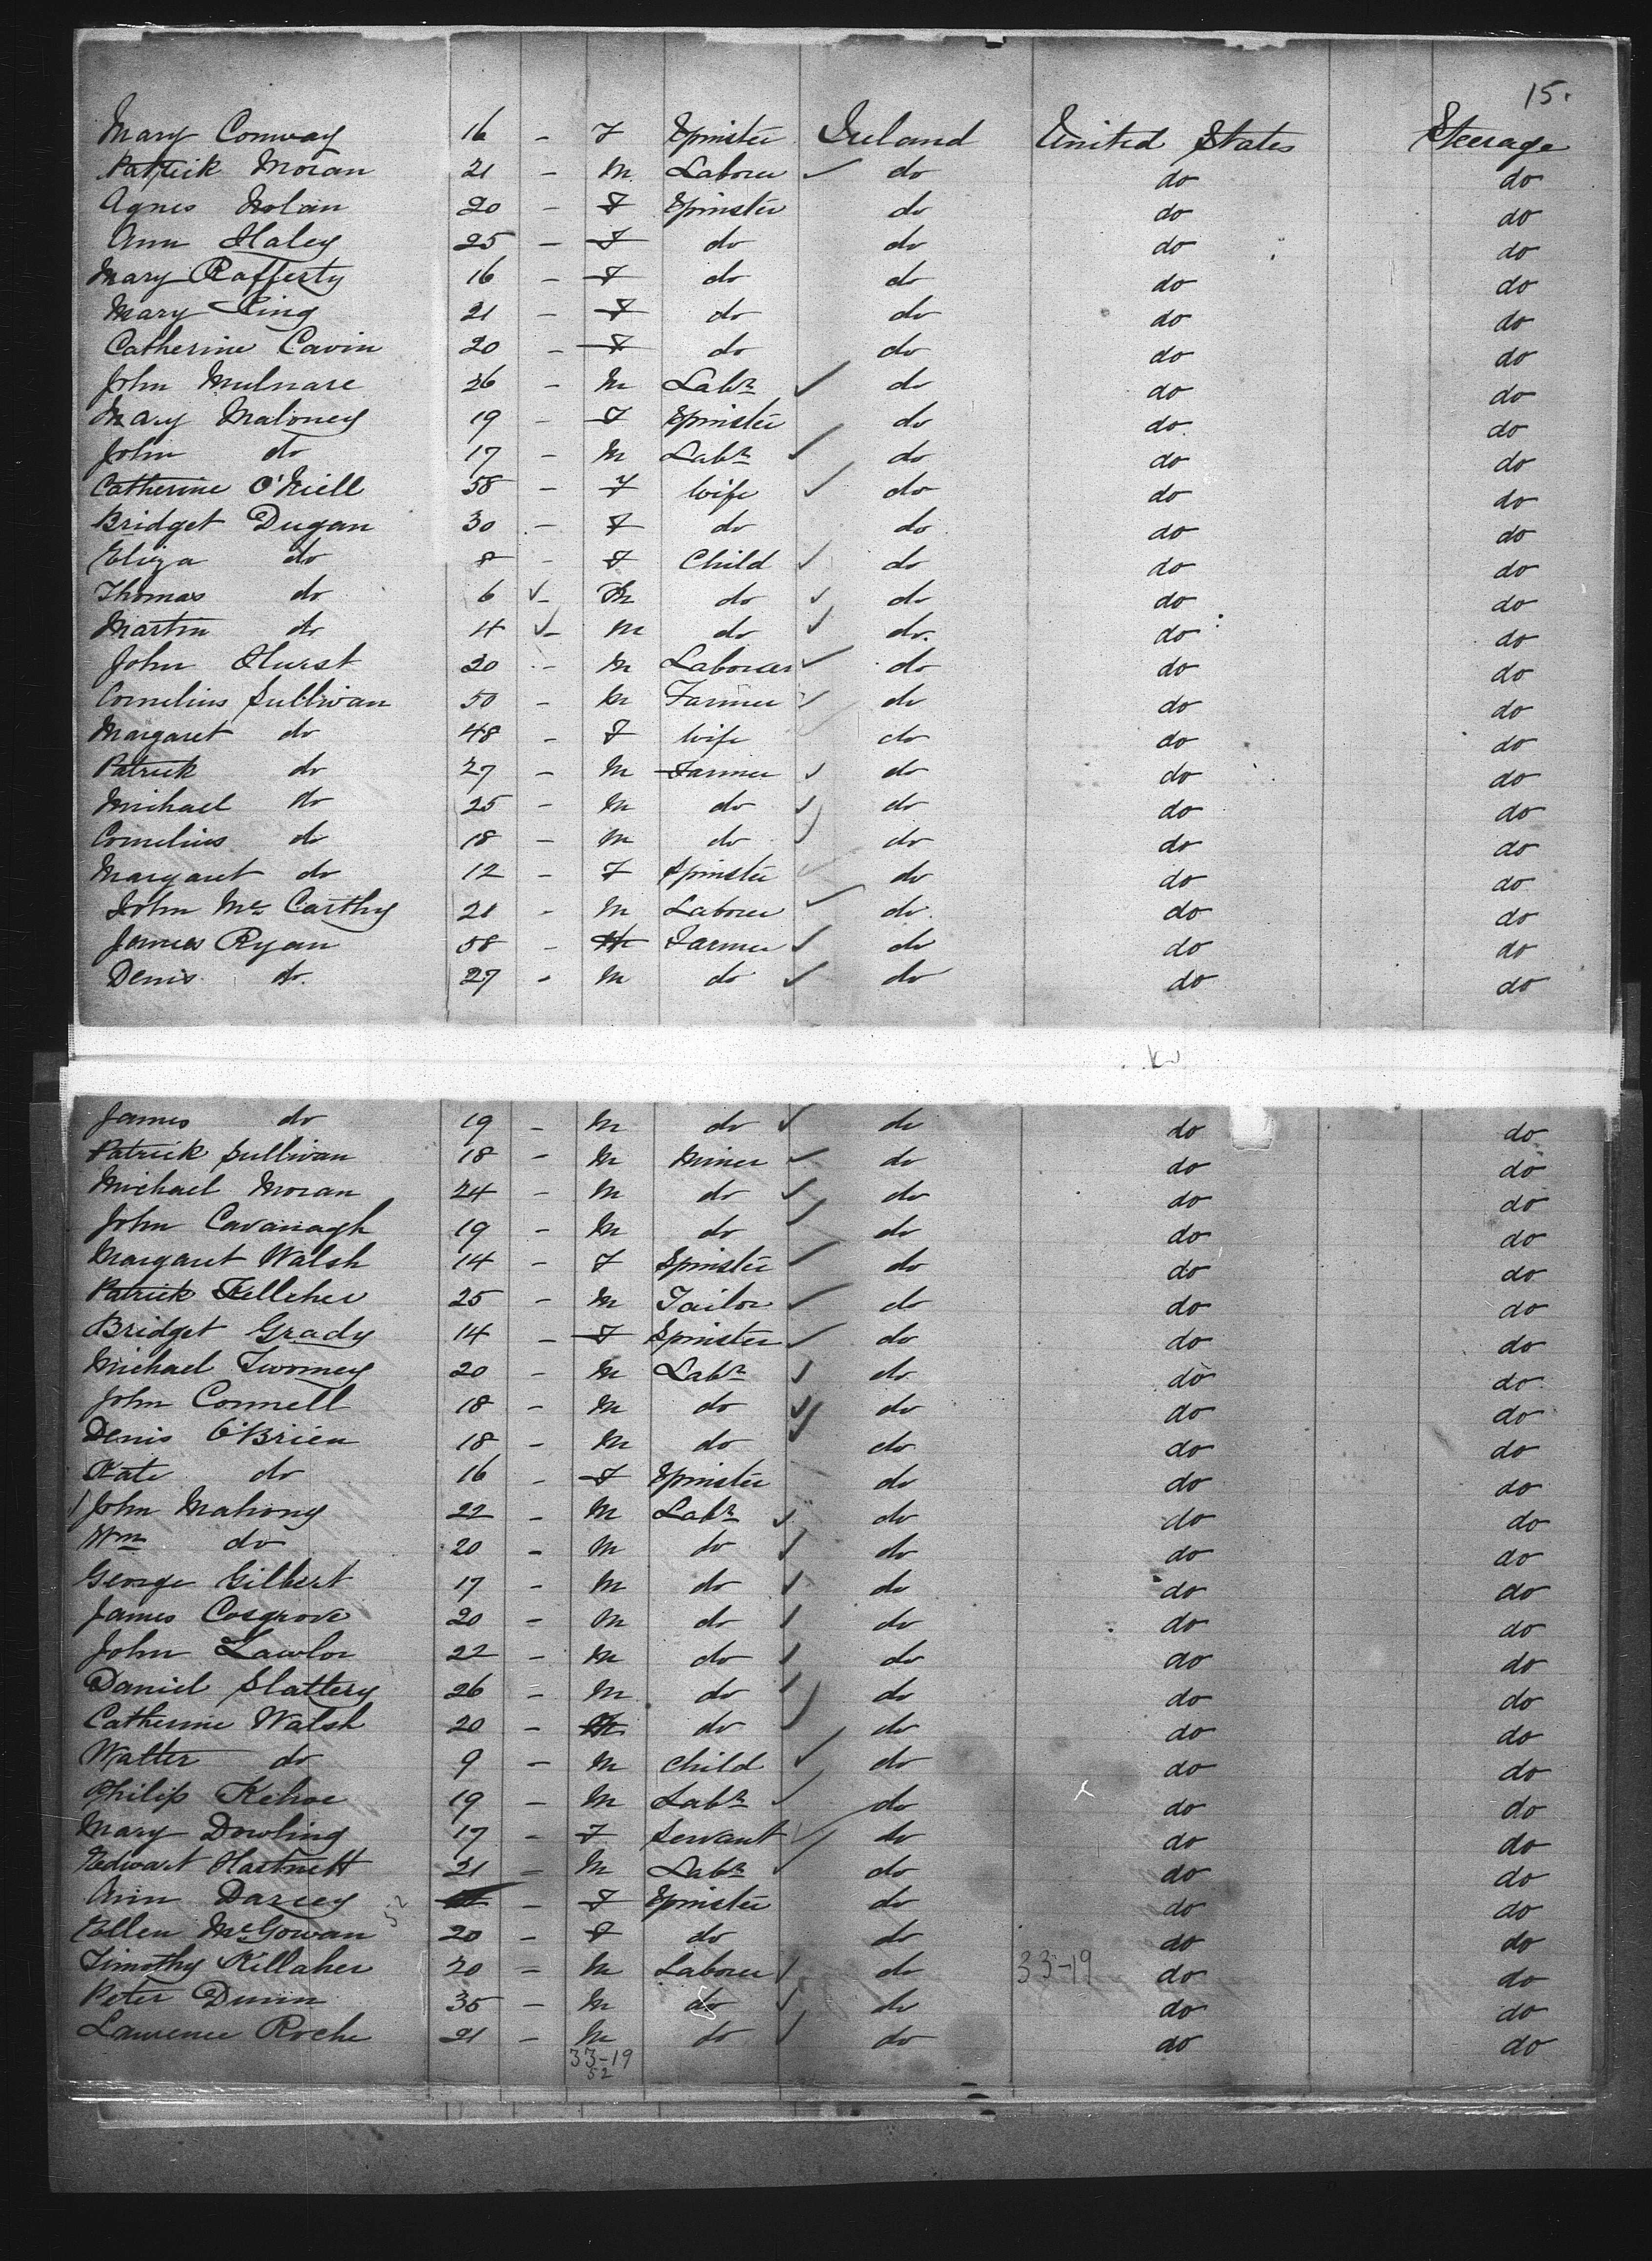 15.
Mary Conway 16 - F Spinster Ireland United States Steerage
Patrick Moran 21 - M Laborer ✓ do do do
Agnes Nolan 20 - F Spinster do do do
Ann Haley 25 - F do do do do
Mary Rafferty 16 - F do do do do
Mary King 21 - F do do do do
Catherine Cavin 20 - F do do do do
John Mulnare 26 - M Labr ✓ do do do
Mary Maloney 19 - F Spinster do do do
John do 17 - M Labr ✓ do do do
Catherine O'Niell 58 - F Wife ✓ do do do
Bridget Dugan 30 - F do do do do
Eliza do 8 - F Child ✓ do do do
Thomas do 6 ✓ - M do ✓ do do do
Martin do 4 ✓ - M do ✓ do do do
John Hurst 20 - M Laborer ✓ do do do
Cornelius Sullivan 50 - M Farmer ✓ do do do
Margaret do 48 - F Wife do do do
Patrick do 27 - M Farmer ✓ do do do
Michael do 25 - M do ✓ do do do
Cornelius do 18 - M do ✓ do do do
Margaret do 12 - F Spinster ✓ do do do
John McCarthy 21 - M Laborer ✓ do do do
James Ryan 58 - M Farmer ✓ do do do
Denis do 27 - M do ✓ do do do
James do 19 - M do ✓ do do do
Patrick Sullivan 18 - M Miner ✓ do do do
Michael Moran 24 - M do ✓ do do do
John Cavanagh 19 - M do ✓ do do do
Margaret Walsh 14 - F Spinster ✓ do do do
Patrick Kelleher 25 - M Tailor ✓ do do do
Bridget Grady 14 - F Spinster ✓ do do do
Michael Twomey 20 - M Labr ✓ do do do
John Connell 18 - M do ✓ do do do
Denis O'Brien 18 - M do ✓ do do do
Kate do 16 - F Spinster do do do
✓ John Mahony 22 - M Labr ✓ do do do
Wm do 20 - M do ✓ do do do
George Gilbert 17 - M do ✓ do do do
James Cosgrove 20 - M do ✓ do do do
John Lawlor 22 - M do ✓ do do do
Daniel Slattery 26 - M do ✓ do do do
Catherine Walsh 20 - do ✓ do do do
Walter do 9 - M Child ✓ do do do
Philip Kehoe 19 - M Labr ✓ do do do
Mary Dowling 17 - F Servant ✓ do do do
Edwart Hartnett 21 - M Labr ✓ do do do
Ann Darcey - F Spinster do do do
Ellen McGowan 52 20 - F do do do do
Timothy Killaher 20 - M Laborer ✓ do 33-19 do do
Peter Dunn 35 - M do ✓ do do do
Lawrence Roche 21 - M do ✓ do do do
33-19
52